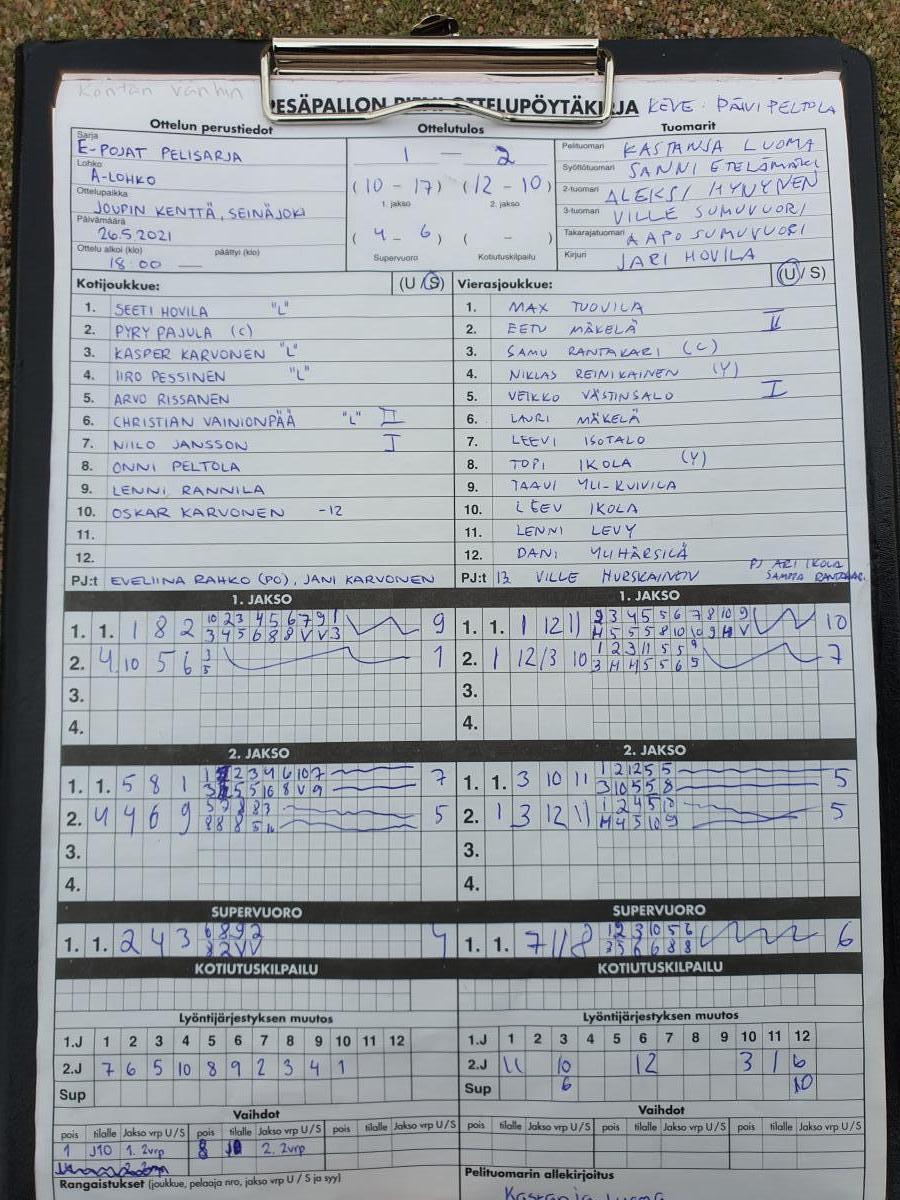 Kontan vanhin
PESÄPALLON PIENI OTTELUPÖYTÄKIRJA KEVE. PÄIVI PELTOLA
Ottelun perustiedot Ottelutulos Tuomarit
Sarja
E-POJAT PELISARJA
Lohko
A-LOHKO
Ottelupaikka
JOUPIN KENTTÄ, SEINÄJOKI
Päivämäärä
26.5.2021
Ottelu alkoi (klo) päättyi (klo)
18:00 —
1 — 2
(10 - 17) (12 - 10)
1. jakso 2. jakso
(4 - 6) ( - )
Supervuoro Kotiutuskilpailu
Pelituomari KASTANJA LUOMA
Syöttötuomari SANNI ETELÄMÄKI
2-tuomari ALEKSI HYNYNEN
3-tuomari VILLE SUMUVUORI
Takarajatuomari AAPO SUMUVUORI
Kirjuri JARI HOVILA
Kotijoukkue: (U/S)
1. SEETI HOVILA "L"
2. PYRY PAJULA (C)
3. KASPER KARVONEN "L"
4. IIRO PESSINEN "L"
5. ARVO RISSANEN
6. CHRISTIAN VAINIONPÄÄ "L" II
7. NIILO JANSSON I
8. ONNI PELTOLA
9. LENNI RANNILA
10. OSKAR KARVONEN -12
11.
12.
PJ:t EVELIINA RAHKO (PO), JANI KARVONEN
Vierasjoukkue: (U/S)
1. MAX TUOVILA
2. EETU MÄKELÄ II
3. SAMU RANTAKARI (C)
4. NIKLAS REINIKAINEN (Y)
5. VEIKKO VÄSTINSALO I
6. LAURI MÄKELÄ
7. LEEVI ISOTALO
8. TOPI IKOLA (Y)
9. TAAVI YLI-KUIVILA
10. LEEV IKOLA
11. LENNI LEVY
12. DANI YLIHÄRSILÄ
PJ:t 13 VILLE HURSKAINEN PJ ARI IKOLA
1. JAKSO
1. 1. 1 8 2 10 2 3 4 5 6 7 9 1 9
3 4 5 6 8 8 V V 3
2. 4 10 5 6 3 1
5
3.
4.
1. JAKSO
1. 1. 1 12 11 2 3 4 5 5 6 7 8 10 9 10
4 5 5 5 8 10 10 9 4 V
2. 1 12/3 10 1 2 3 11 5 5 9 7
3 4 4 5 5 6 5
3.
4.
2. JAKSO
1. 1. 5 8 1 1 2 3 4 6 10 7 7
3 5 5 10 8 V 9
2. 4 4 6 9 5 7 8 8 3 5
8 8 8 5 10
3.
4.
2. JAKSO
1. 1. 3 10 11 1 2 12 5 5 5
3 10 5 5 8
2. 1 3 12 11 1 2 4 5 10 5
4 4 5 10 9
3.
4.
SUPERVUORO
1. 1. 2 4 3 6 8 9 2 4
8 2 V V
SUPERVUORO
1. 1. 7 11 8 1 2 3 10 5 6 6
3 5 6 6 8 8
KOTIUTUSKILPAILU
KOTIUTUSKILPAILU
Lyöntijärjestyksen muutos
1.J 1 2 3 4 5 6 7 8 9 10 11 12
2.J 7 6 5 10 8 9 2 3 4 1
Sup
Lyöntijärjestyksen muutos
1.J 1 2 3 4 5 6 7 8 9 10 11 12
2.J 11 10 12 3 1 6
Sup 6 10
Vaihdot
pois tilalle Jakso vrp U/S pois tilalle Jakso vrp U/S pois tilalle Jakso vrp U/S
1 J10 1. 2vrp 8 J10 2. 2vrp
Rangaistukset (joukkue, pelaaja nro, jakso vrp U / S ja syy)
Vaihdot
pois tilalle Jakso vrp U/S pois tilalle Jakso vrp U/S pois tilalle Jakso vrp U/S
Pelituomarin allekirjoitus
Kastanja Luoma